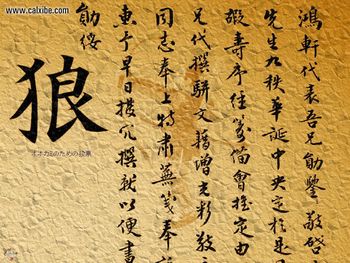 www.calxibe.com
鴻軒代表吾兄勛鑒敬啓
先生九秩華誕中央定於是
嘏壽序經籌備會推定由
兄代撰駢文藉增光彩敬
同志奉上特肅蕪箋奉
惠予早日撰就以便書
勛綏
狼
オオカミのための